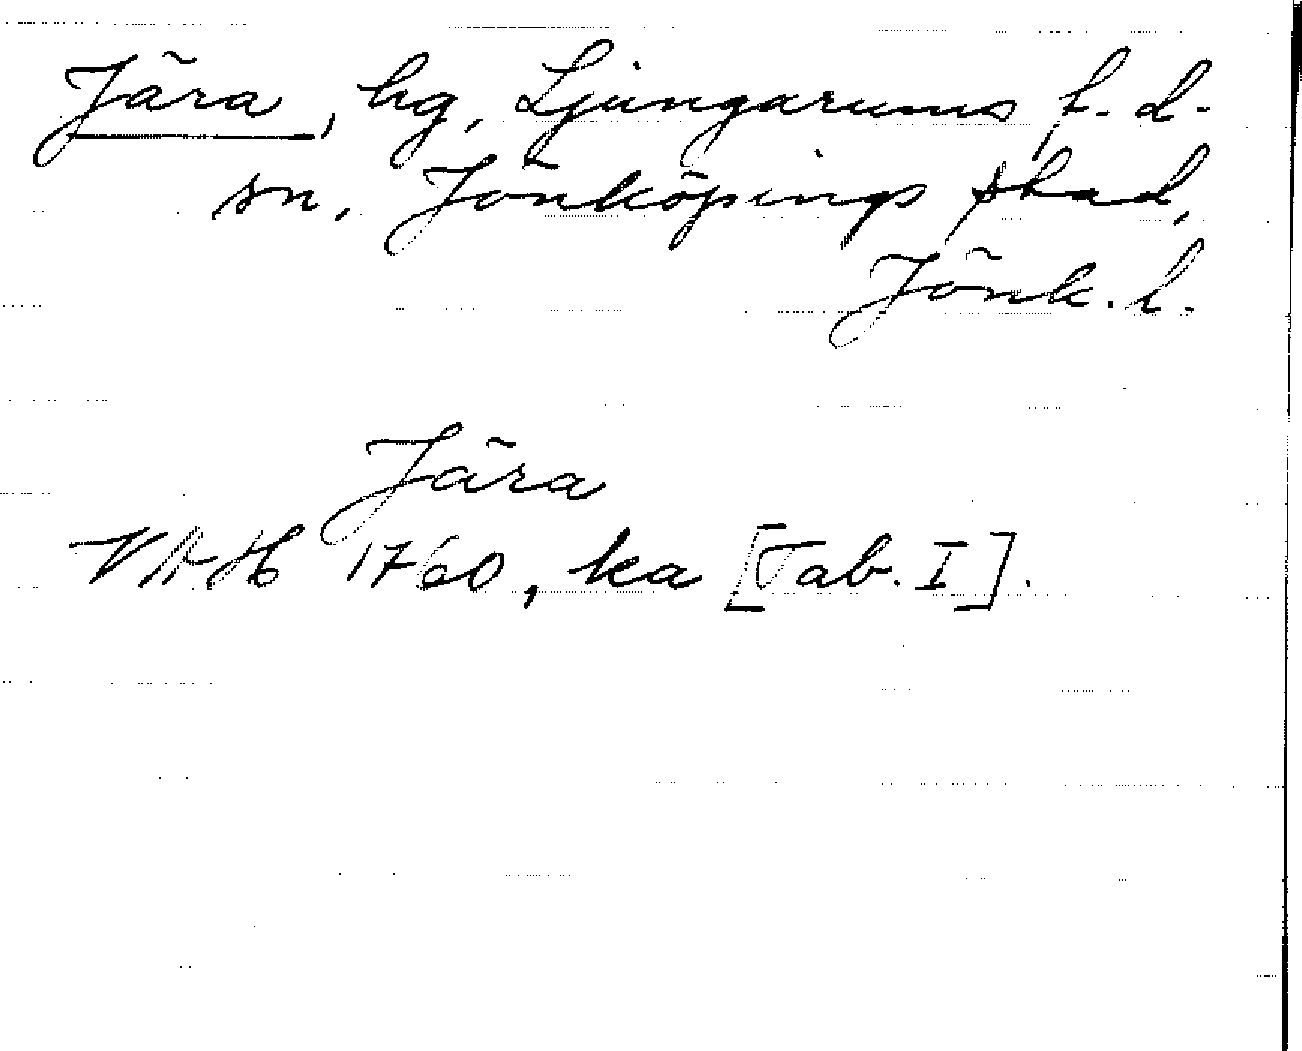 Jära, hg, Ljungarums f.d.
sn, Jönköpings stad,
Jönk. l.
Jära
VAH 1760, ka [Tab. I].